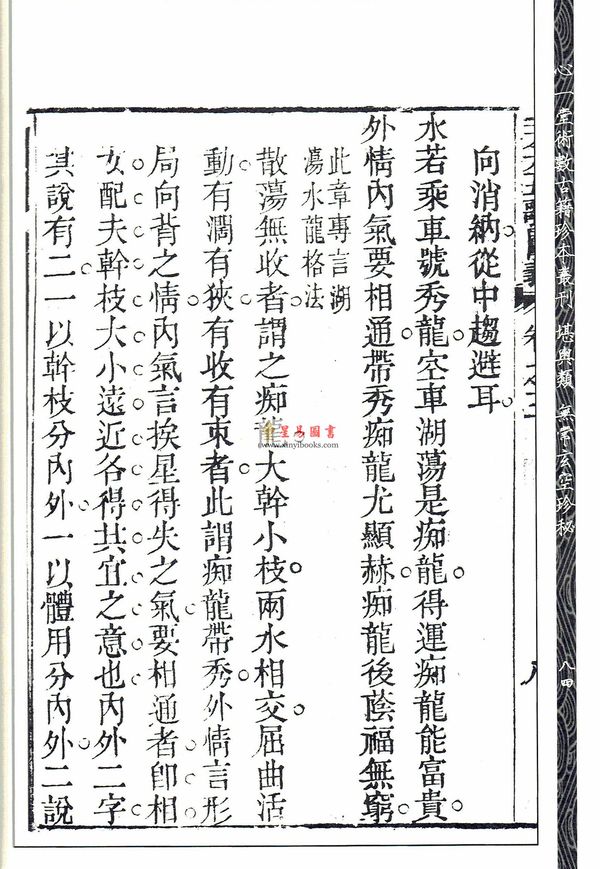 心一堂術數古籍珍本叢刊 堪輿類 無常玄空珍秘
八四
向消納從中趨避耳
水若乘車號秀龍空車湖蕩是痴龍得運痴龍能富貴
外情內氣要相通帶秀痴龍尤顯赫痴龍後蔭福無窮
此章專言湖
蕩水龍格法
散蕩無收者謂之痴龍大幹小枝兩水相交屈曲活
動有濶有狹有收有束者此謂痴龍帶秀外情言形
局向背之情內氣言挨星得失之氣要相通者即相
女配夫幹枝大小遠近各得其宜之意也內外二字
其說有二一以幹枝分內外一以體用分內外二說
星易圖書
www.xinyibooks.com